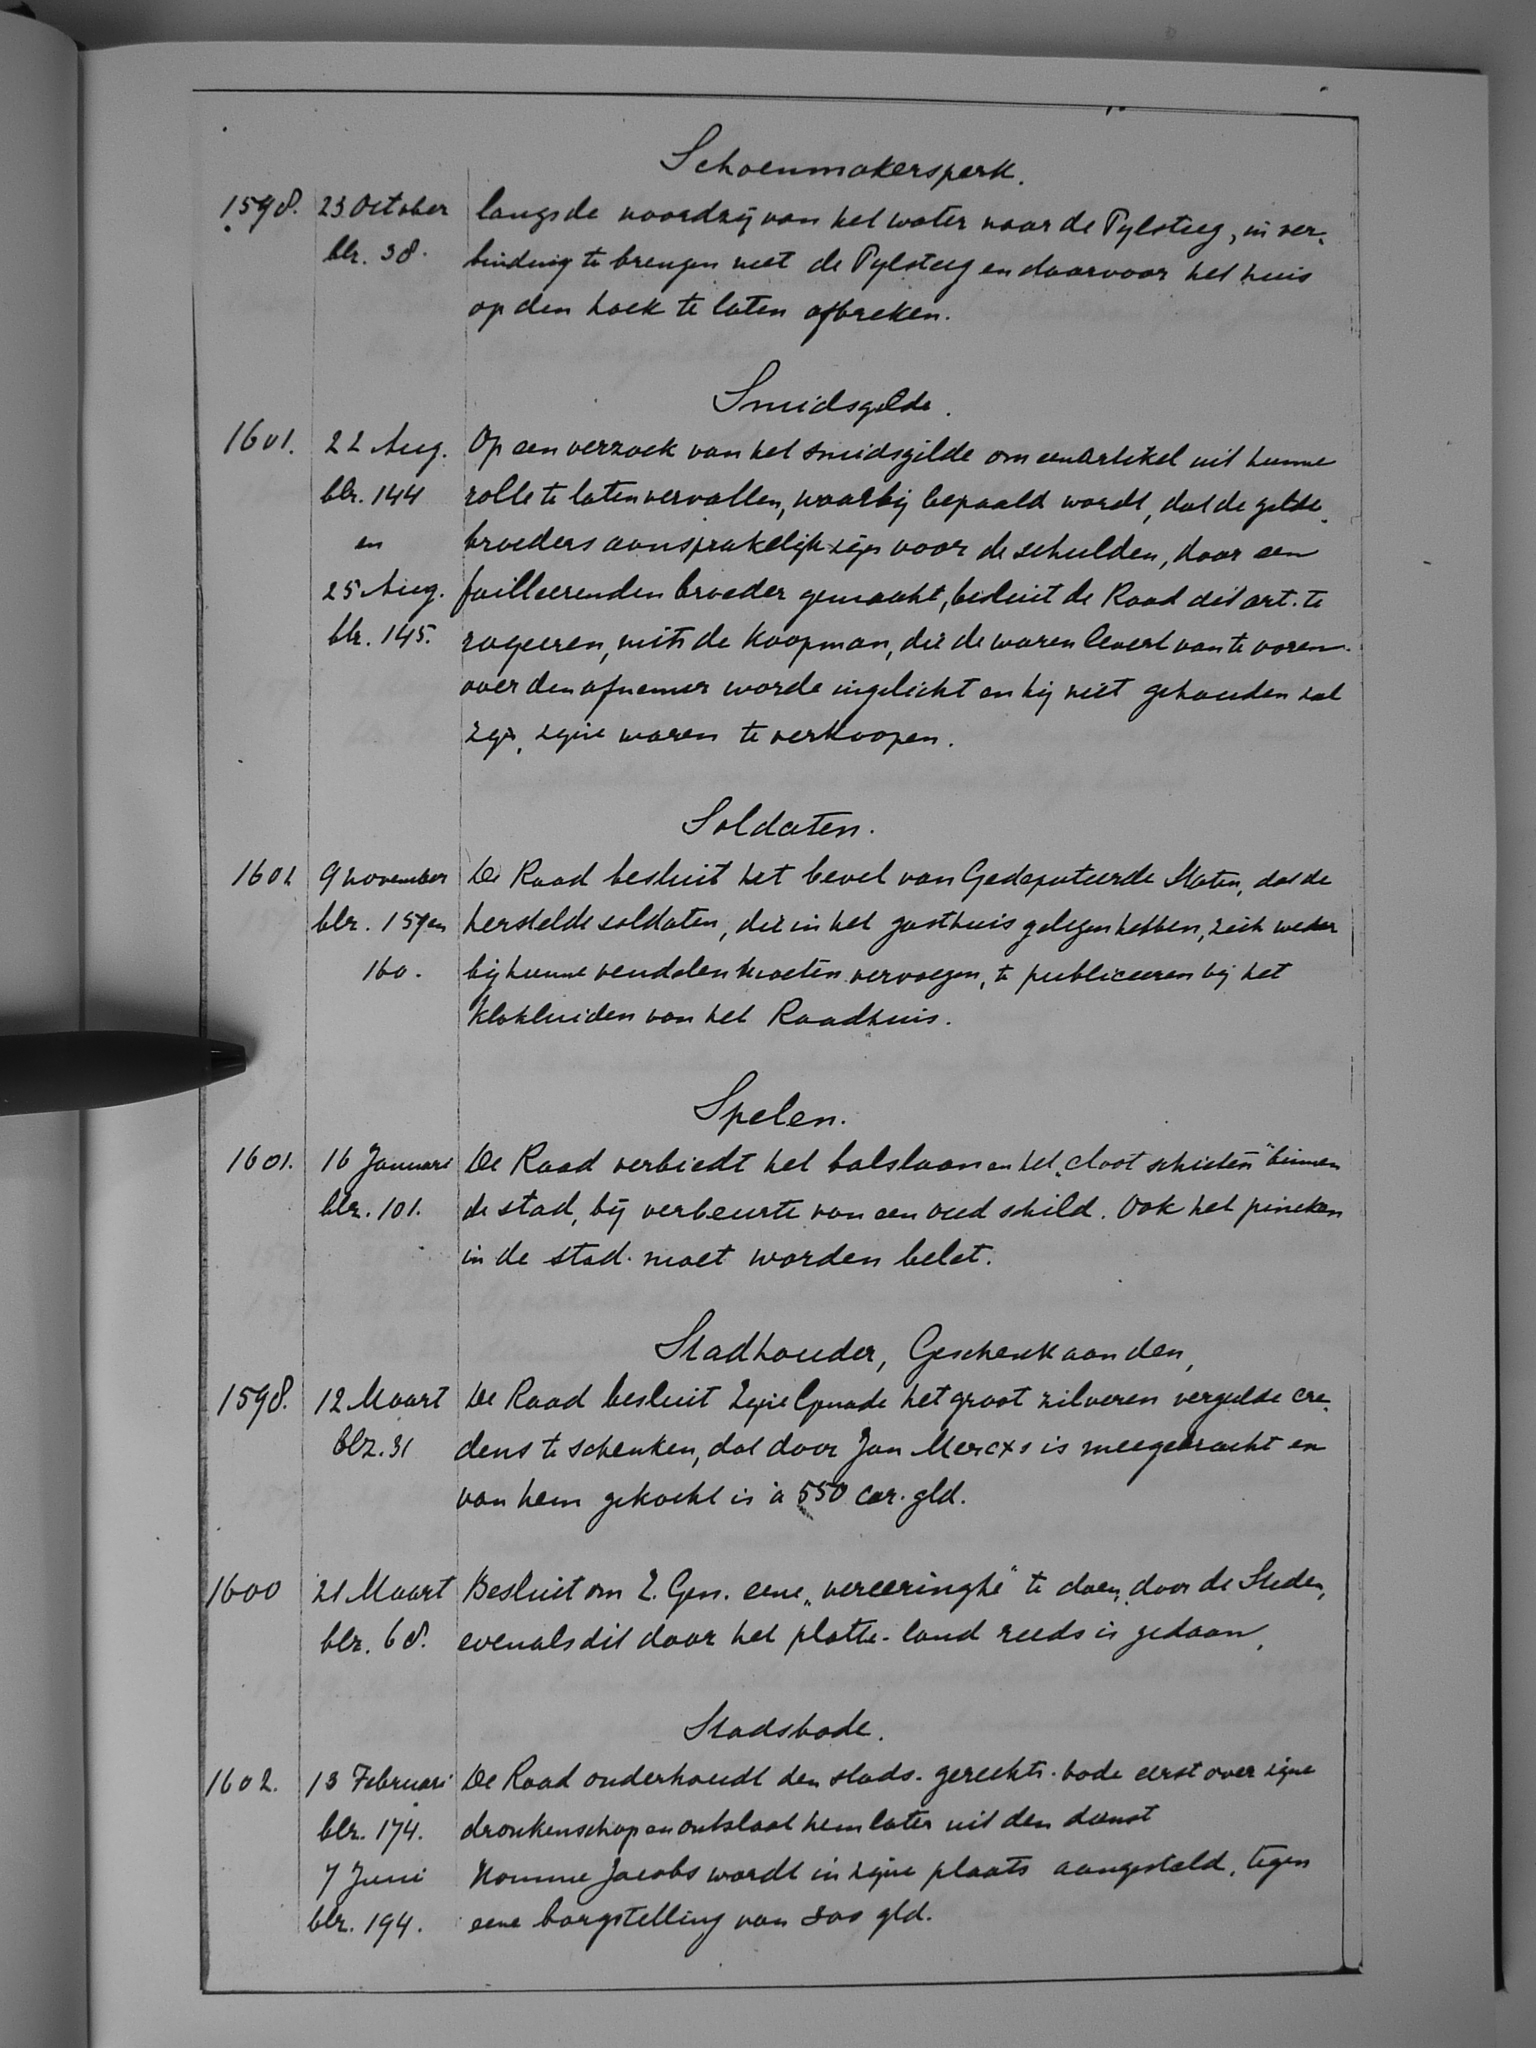 Schoenmakersperk.
1598. 23 October langs de noordzij van het water naar de Pylsteeg, in ver-
blz. 38. binding te brengen met de Pylsteeg en daarvoor het huis
op den hoek te laten afbreken.
Smidsgilde.
1601. 22 Aug. Op een verzoek van het smidsgilde om een artikel uit hunne
blz. 144 rolle te laten vervallen, waarbij bepaald wordt, dat de gilde-
en broeders aansprakelijk zijn voor de schulden, door een
25 Aug. failleerenden broeder gemaakt, besluit de Raad dit art. te
blz. 145. royeeren, mits de koopman, die de waren levert van te voren
over den afnemer worde ingelicht en hij niet gehouden zal
zijn, zijne waren te verkoopen.
Soldaten.
1601 9 november De Raad besluit het bevel van Gedeputeerde Staten, dat de
blz. 159 en herstelde soldaten, die in het gasthuis gelegen hebben, zich weder
160. bij hunne vendelen moeten vervoegen, te publiceeren bij het
klokluiden van het Raadhuis.
Spelen.
1601. 16 Januari De Raad verbiedt het balslaan en het „cloot schieten" binnen
blz. 101. de stad, bij verbeurte van een oud schild. Ook het pincken
in de stad moet worden belet.
Stadhouder, Geschenk aan den,
1598. 12 Maart De Raad besluit Zijne Genade het groot zilveren vergulde cre-
blz. 31 dens te schenken, dat door Jan Mercxs is meegebracht en
van hem gekocht is à 550 car. gld.
1600 21 Maart Besluit om Z. Gen. eene „vereeringhe" te doen, door de Steden,
blz. 68. evenals dit door het platte-land reeds is gedaan.
Stadsbode.
1602. 13 Februari De Raad onderhoudt den stads-gerechts-bode eerst over zijne
blz. 174. dronkenschap en ontslaat hem later uit den dienst
7 Juni Nomme Jacobs wordt in zijne plaats aangesteld, tegen
blz. 194. eene borgstelling van gld.